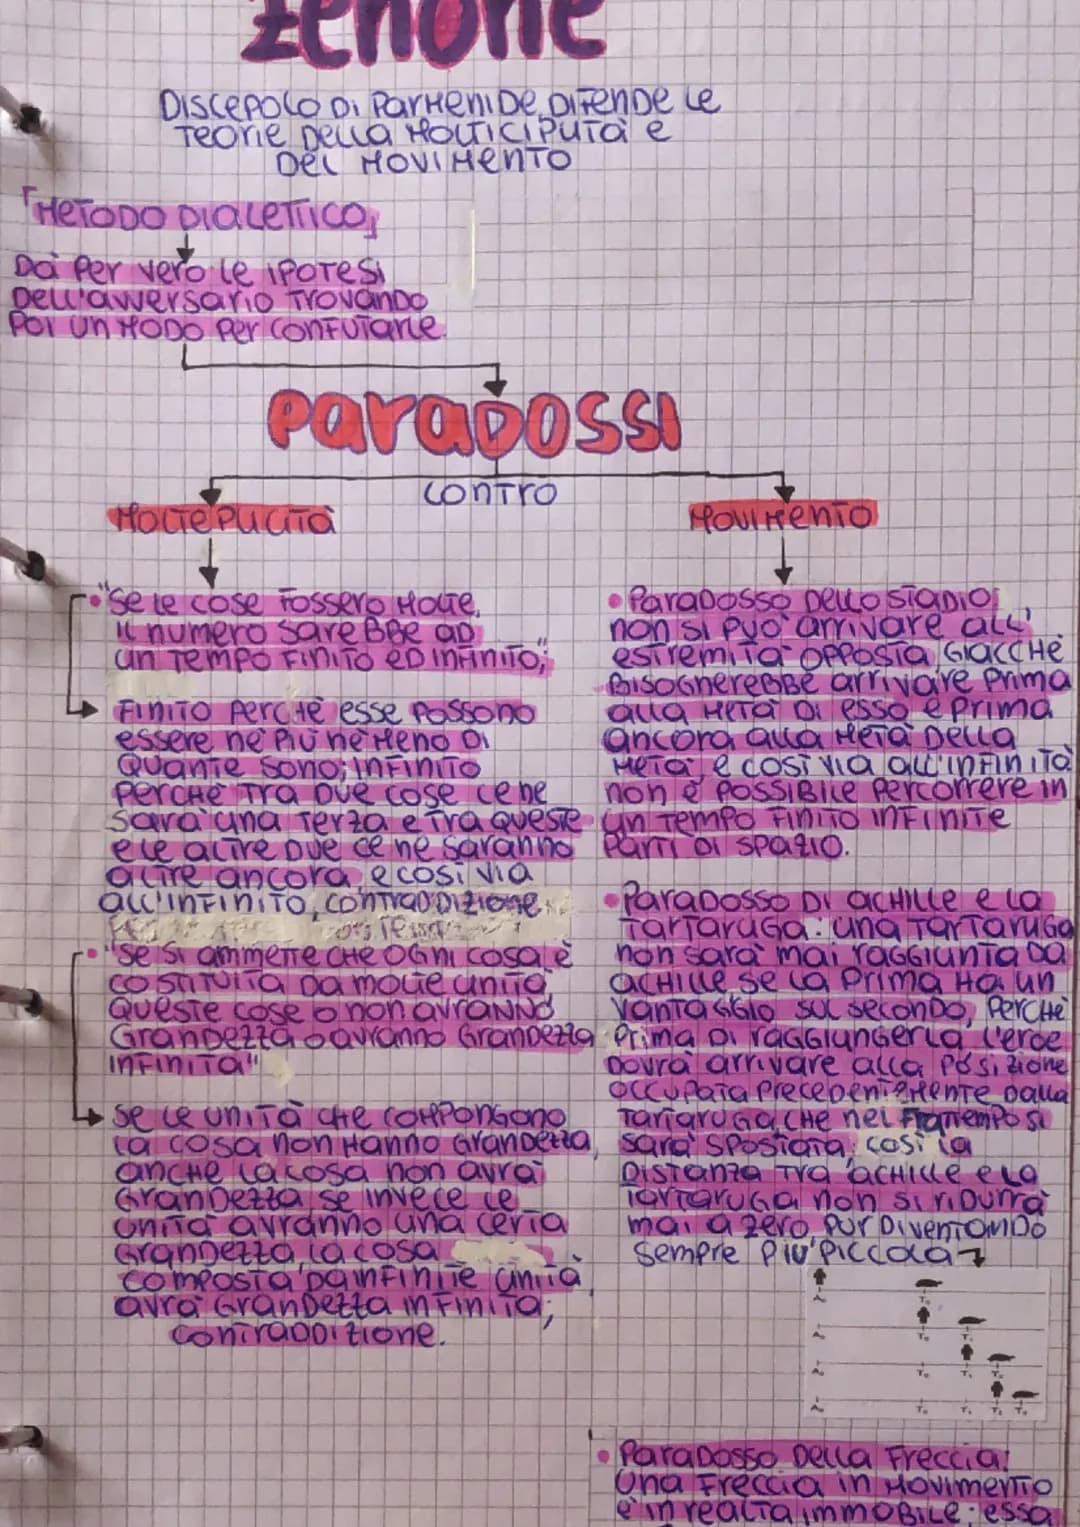 Zenone
DISCEPOLO DI PARMENIDE DIFENDE LE
TEORIE DELLA MOLTICIPLITÀ E
DEL MOVIMENTO
"METODO DIALETTICO"
Dà PER VERO LE IPOTESI
DELL'AVVERSARIO TROVANDO
POI UN MODO PER CONFUTARLE.
PARADOSSI
CONTRO
MOLTEPLICITÀ
MOVIMENTO
• "SE LE COSE FOSSERO MOLTE,
IL NUMERO SAREBBE AD
UN TEMPO FINITO ED INFINITO;"
FINITO PERCHÈ ESSE POSSONO
ESSERE NÈ PIÙ NÈ MENO DI
QUANTE SONO; INFINITO
PERCHÈ TRA DUE COSE CE NE
SARÀ UNA TERZA E TRA QUESTE
E LE ALTRE DUE CE NE SARANNO
ALTRE ANCORA, E COSÌ VIA
ALL'INFINITO, CONTRADDIZIONE.
• "SE SI AMMETTE CHE OGNI COSA È
COSTITUITA DA MOLTE UNITÀ
QUESTE COSE O NON AVRANNO
GRANDEZZA O AVRANNO GRANDEZZA
INFINITA"
SE LE UNITÀ CHE COMPONGONO
LA COSA NON HANNO GRANDEZZA,
ANCHE LA COSA NON AVRÀ
GRANDEZZA, SE INVECE LE
UNITÀ AVRANNO UNA CERTA
GRANDEZZA, LA COSA
COMPOSTA DA INFINITE UNITÀ,
AVRÀ GRANDEZZA INFINITA;
CONTRADDIZIONE.
• PARADOSSO DELLO STADIO:
NON SI PUÒ ARRIVARE ALL'
ESTREMITÀ OPPOSTA, GIACCHÈ
BISOGNEREBBE ARRIVARE PRIMA
ALLA METÀ DI ESSO E PRIMA
ANCORA ALLA METÀ DELLA
METÀ, E COSÌ VIA ALL'INFINITÀ
NON È POSSIBILE PERCORRERE IN
UN TEMPO FINITO INFINITE
PARTI DI SPAZIO.
• PARADOSSO DI ACHILLE E LA
TARTARUGA: UNA TARTARUGA
NON SARÀ MAI RAGGIUNTA DA
ACHILLE SE LA PRIMA HA UN
VANTAGGIO SUL SECONDO, PERCHÈ
PRIMA DI RAGGIUNGERLA L'EROE
DOVRÀ ARRIVARE ALLA POSIZIONE
OCCUPATA PRECEDENTEMENTE DALLA
TARTARUGA, CHE NEL FRATTEMPO SI
SARÀ SPOSTATA; COSÌ LA
DISTANZA TRA ACHILLE E LA
TARTARUGA NON SI RIDURRÀ
MAI A ZERO, PUR DIVENTANDO
SEMPRE PIÙ PICCOLA
A₀ T₀
A₀ T₀ T₁
A₀ T₀ T₁ T₂
A₀ T₀ T₁ T₂ T₃
• PARADOSSO DELLA FRECCIA:
UNA FRECCIA IN MOVIMENTO
È IN REALTÀ IMMOBILE: ESSA